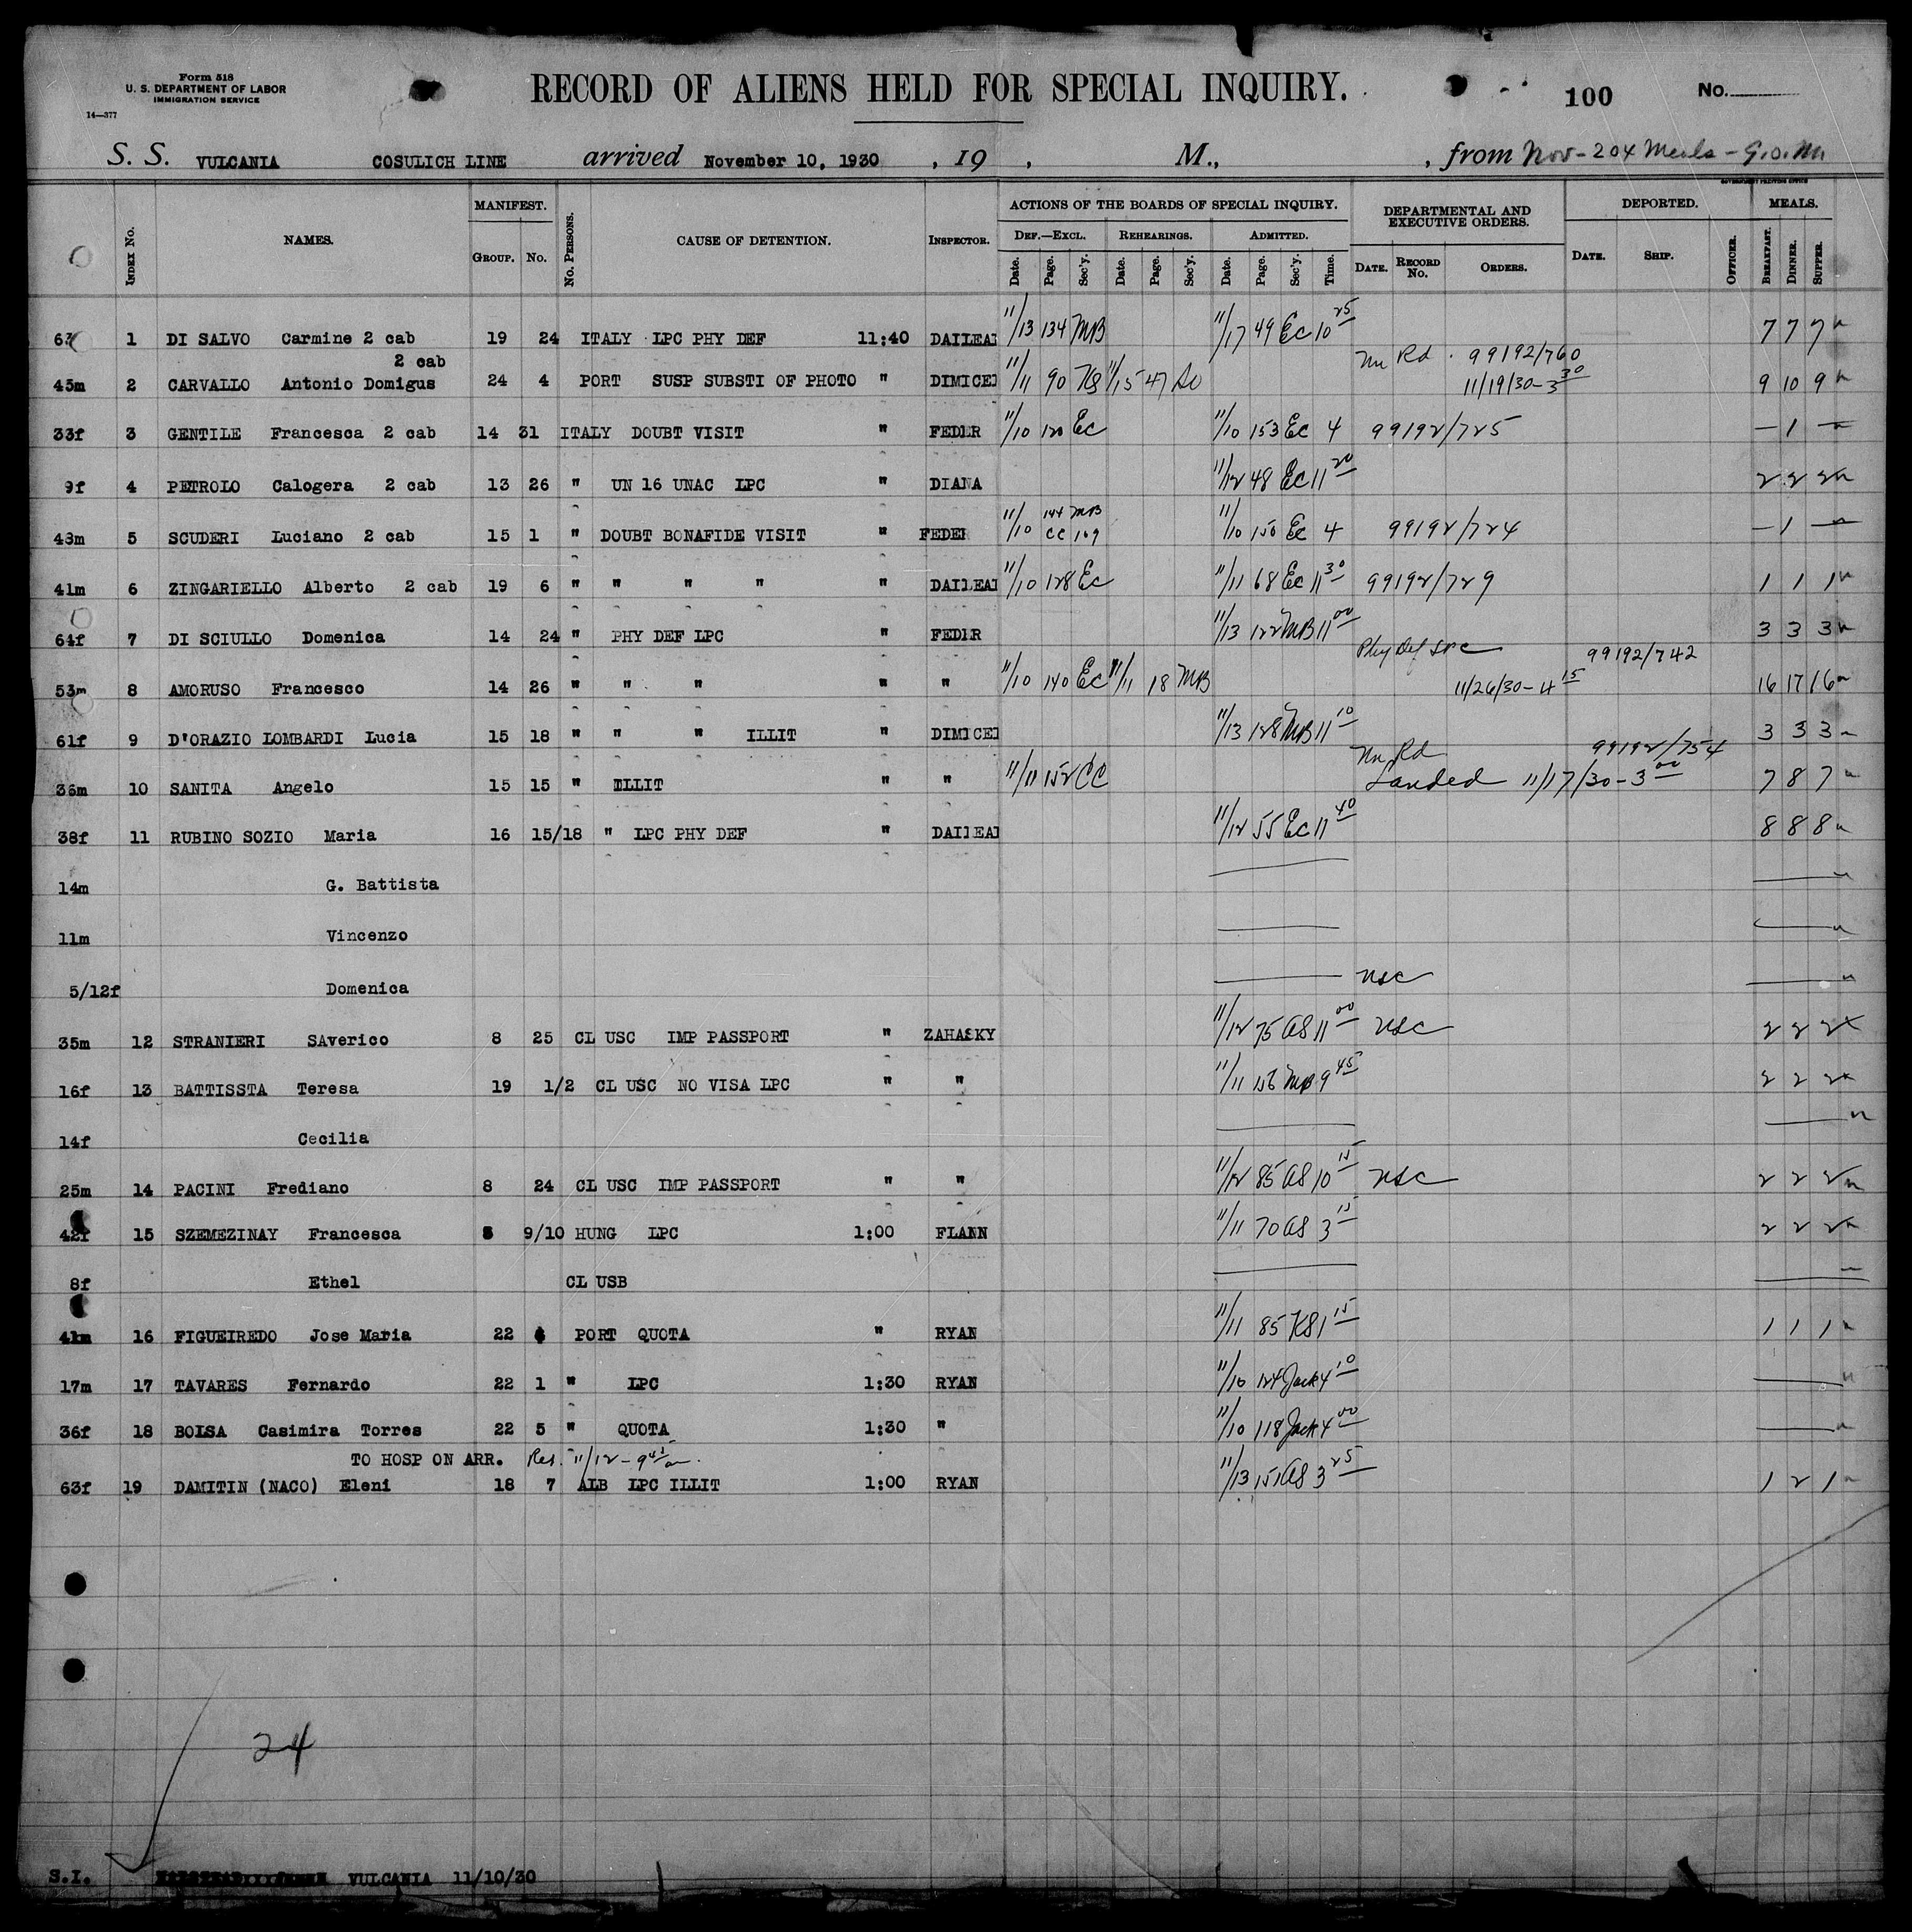 Form 518
U. S. DEPARTMENT OF LABOR
IMMIGRATION SERVICE
14—377
RECORD OF ALIENS HELD FOR SPECIAL INQUIRY.
100 No.
S. S. VULCANIA COSULICH LINE arrived November 10, 1930 , 19 , M., , from Nov - 204 Meals - G.O.M.
GOVERNMENT PRINTING OFFICE
INDEX No. NAMES. MANIFEST. GROUP. No. No. PERSONS. CAUSE OF DETENTION. INSPECTOR. ACTIONS OF THE BOARDS OF SPECIAL INQUIRY. DEF.—EXCL. Date. Page. Sec'y. REHEARINGS. Date. Page. Sec'y. ADMITTED. Date. Page. Sec'y. Time. DEPARTMENTAL AND EXECUTIVE ORDERS. DATE. RECORD No. ORDERS. DEPORTED. DATE. SHIP. OFFICER. MEALS. BREAKFAST. DINNER. SUPPER.
1 DI SALVO Carmine 2 cab 19 24 ITALY LPC PHY DEF 11:40 DAILEAD 11/13 134 MB 11/17 49 Ec 10 25 7 7 7
2 cab 99192/760
45m 2 CARVALLO Antonio Domigus 24 4 PORT SUSP SUBSTI OF PHOTO " DIMICEI 11/11 90 KS 11/15 47 11/19/30 - 3 30 9 10 9
33f 3 GENTILE Francesca 2 cab 14 31 ITALY DOUBT VISIT " FEDER 11/10 120 Ec 11/10 153 Ec 4 99192/725 — 1 —
9f 4 PETROLO Calogera 2 cab 13 26 " UN 16 UNAC LPC " DIANA 11/12 48 Ec 11 20 2 2 2
43m 5 SCUDERI Luciano 2 cab 15 1 " DOUBT BONAFIDE VISIT " FEDER 11/10 144 MB CC 109 11/10 150 Ec 4 99192/724 — 1 —
41m 6 ZINGARIELLO Alberto 2 cab 19 6 " " " " " DAILEAD 11/10 128 Ec 11/11 68 Ec 11 30 99192/729 1 1 1
64f 7 DI SCIULLO Domenica 14 24 " PHY DEF LPC " FEDER 11/13 122 MB 11 00 3 3 3
Phy Def LPC 99192/742
53m 8 AMORUSO Francesco 14 26 " " " " " 11/10 140 Ec 11/11 18 MB 11/26/30 - 4 15 16 17 16
61f 9 D'ORAZIO LOMBARDI Lucia 15 18 " " " ILLIT " DIMICEI 11/13 128 MB 11 10 3 3 3
99192/754
36m 10 SANITA Angelo 15 15 " ILLIT " " 11/11 152 CC Landed 11/17/30 - 3 00 7 8 7
38f 11 RUBINO SOZIO Maria 16 15/18 " LPC PHY DEF " DAILEAD 11/12 55 Ec 11 40 8 8 8
14m G. Battista
11m Vincenzo
5/12f Domenica USC
35m 12 STRANIERI SAverico 8 25 CL USC IMP PASSPORT " ZAHASKY 11/12 75 AS 11 00 USC 2 2 2
16f 13 BATTISSTA Teresa 19 1/2 CL USC NO VISA LPC " " 11/11 156 MB 9 45 2 2 2
14f Cecilia
25m 14 PACINI Frediano 8 24 CL USC IMP PASSPORT " " 11/12 85 AS 10 15 USC 2 2 2
42f 15 SZEMEZINAY Francesca 9/10 HUNG LPC 1:00 FLANN 11/11 70 AS 3 15 2 2 2
8f Ethel CL USB
41m 16 FIGUEIREDO Jose Maria 22 PORT QUOTA " RYAN 11/11 85 KS 1 15 1 1 1
17m 17 TAVARES Fernardo 22 1 " LPC 1:30 RYAN 11/10 124 Jack 4 10
36f 18 BOLSA Casimira Torres 22 5 " QUOTA 1:30 " 11/10 118 Jack 4 00
TO HOSP ON ARR. Rel. 11/12 - 9 45 am.
63f 19 DAMITIN (NACO) Eleni 18 7 ALB LPC ILLIT 1:00 RYAN 11/13 151 AS 3 25 1 2 1
24
S.I. VULCANIA 11/10/30